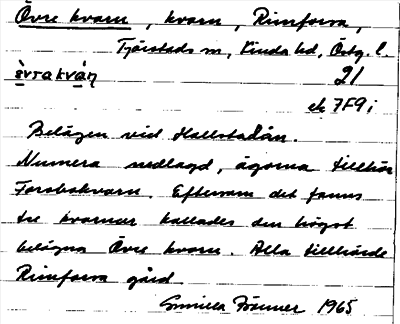 Övre kvarn, kvarn, Rimforsa,
Tjärstads sn, Kinda hd, Östg. l.
èvrakván
21
ek 7F9i
Belägen vid Hallstadån.
Numera nedlagd, ägorna tillhör
Forsbokvarn. Eftersom det fanns
tre kvarnar kallades den högst
belägna Övre kvarn. Alla tillhörde
Rimforsa gård.
Gunilla 1965